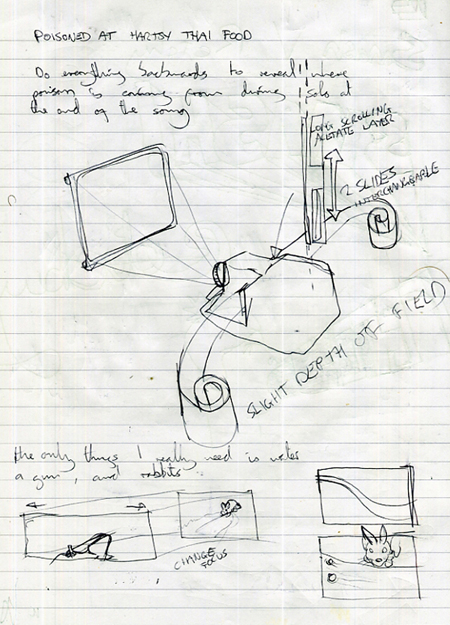 POISONED AT HARTSY THAI FOOD
Do everything backwards to reveal where
poison is coming from during solo at
the end of the song
LONG SCROLLING
ACETATE LAYER
2 SLIDES
INTERCHANGEABLE
SLIGHT DEPTH OF FIELD
the only things I really need is water
a gun, and rabbits
CHANGE
FOCUS